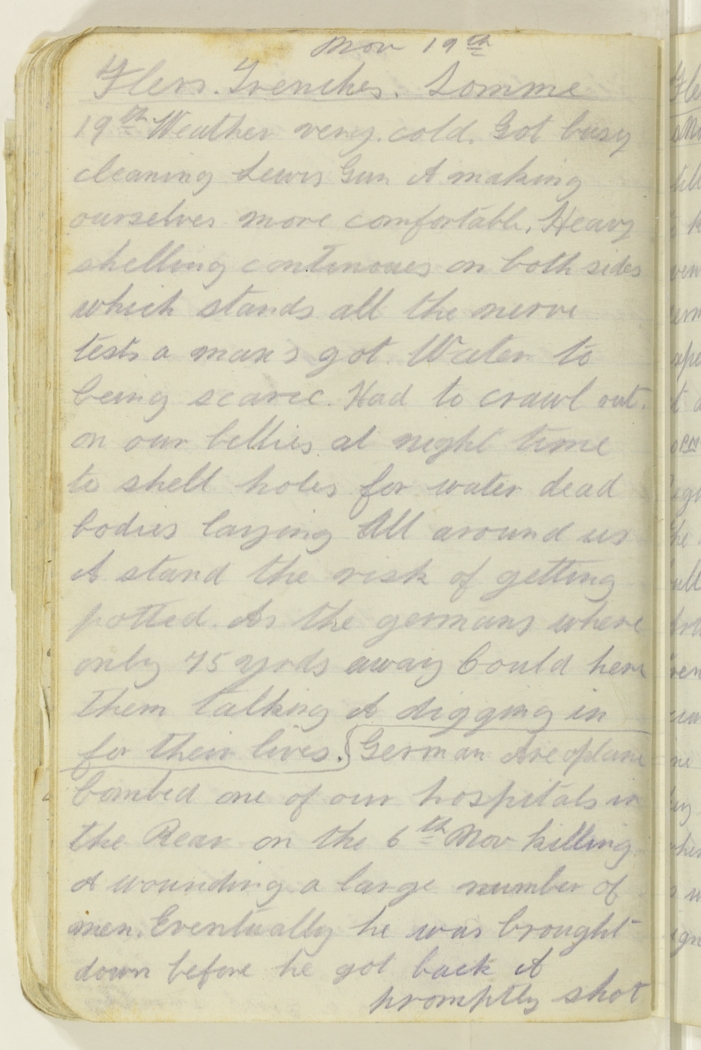 Nov 19th
Flers. Trenches. Somme
19th Weather very cold. Got busy
cleaning Lewis Gun & making
ourselves more comfortable. Heavy
shelling continues on both sides
which stands all the nerve
tests a mans got. Water to
being scarce. Had to crawl out
on our bellies at night time
to shell holes for water dead
bodies laying all around us
& stand the risk of getting
potted. As the germans where
only 75 yrds away Could here
them talking & digging in
for their lives. German Areoplane
bombed one of our hospitals in
the Rear on the 6th Nov killing
& wounding a large number of
men. Eventually he was brought
down before he got back &
promptly shot